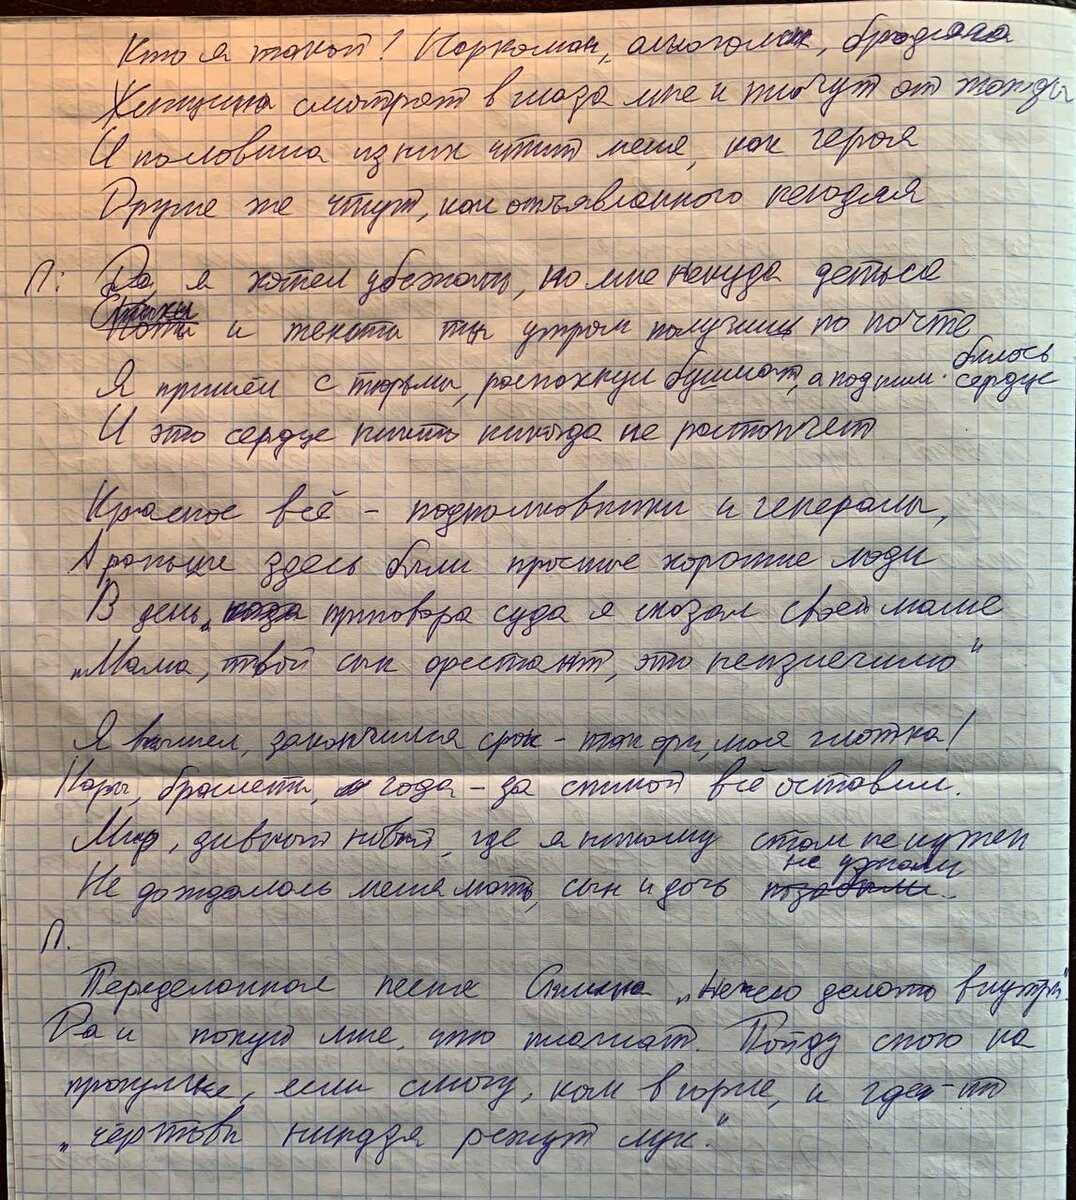 Кто я такой? Наркоман, алкоголик, бродяга
Женщины смотрят в глаза мне и текут от жажды
И половина из них чтит меня, как героя
Другие же чтут, как отъявленного негодяя
П: Да, я хотел убежать, но мне некуда деться
Стихи
Ноты и тексты ты утром получишь по почте
билось
Я пришёл с тюрьмы, распахнул бушлат, а под ним сердце
И это сердце никто никогда не растопчет
Красное всё – подполковники и генералы,
А раньше здесь были простые хорошие люди
В день, когда приговора суда я сказал своей маме
„Мама, твой сын арестант, это неизлечимо“
Я вышел, закончился срок – так ори, моя глотка!
Нары, браслеты, года – за спиной всё оставил.
Мир, дивный новый, где я никому стал не нужен
не узнали
Не дождалась меня мать, сын и дочь позабыли.
П.
Переделанная песня Сплина „Нечего делать внутри“
Да и похуй мне, что плагиат. Пойду спою на
прогулке, если смогу, ком в горле, и где-то
„чёртовы ниндзя режут лук.“